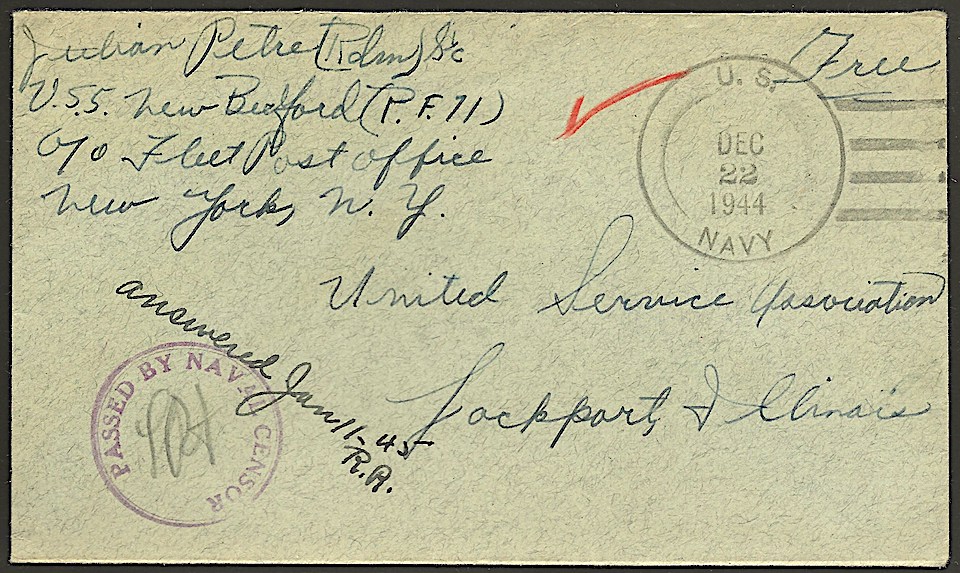 Julian Petre (Rdm) S1/c
U.S.S. New Bedford (P.F. 71)
c/o Fleet Post Office
New York, N.Y.
Free
U. S.
DEC
22
1944
NAVY
United Service Association
Lockport, Illinois
answered Jan 11-45
R.A.
PASSED BY NAVAL CENSOR